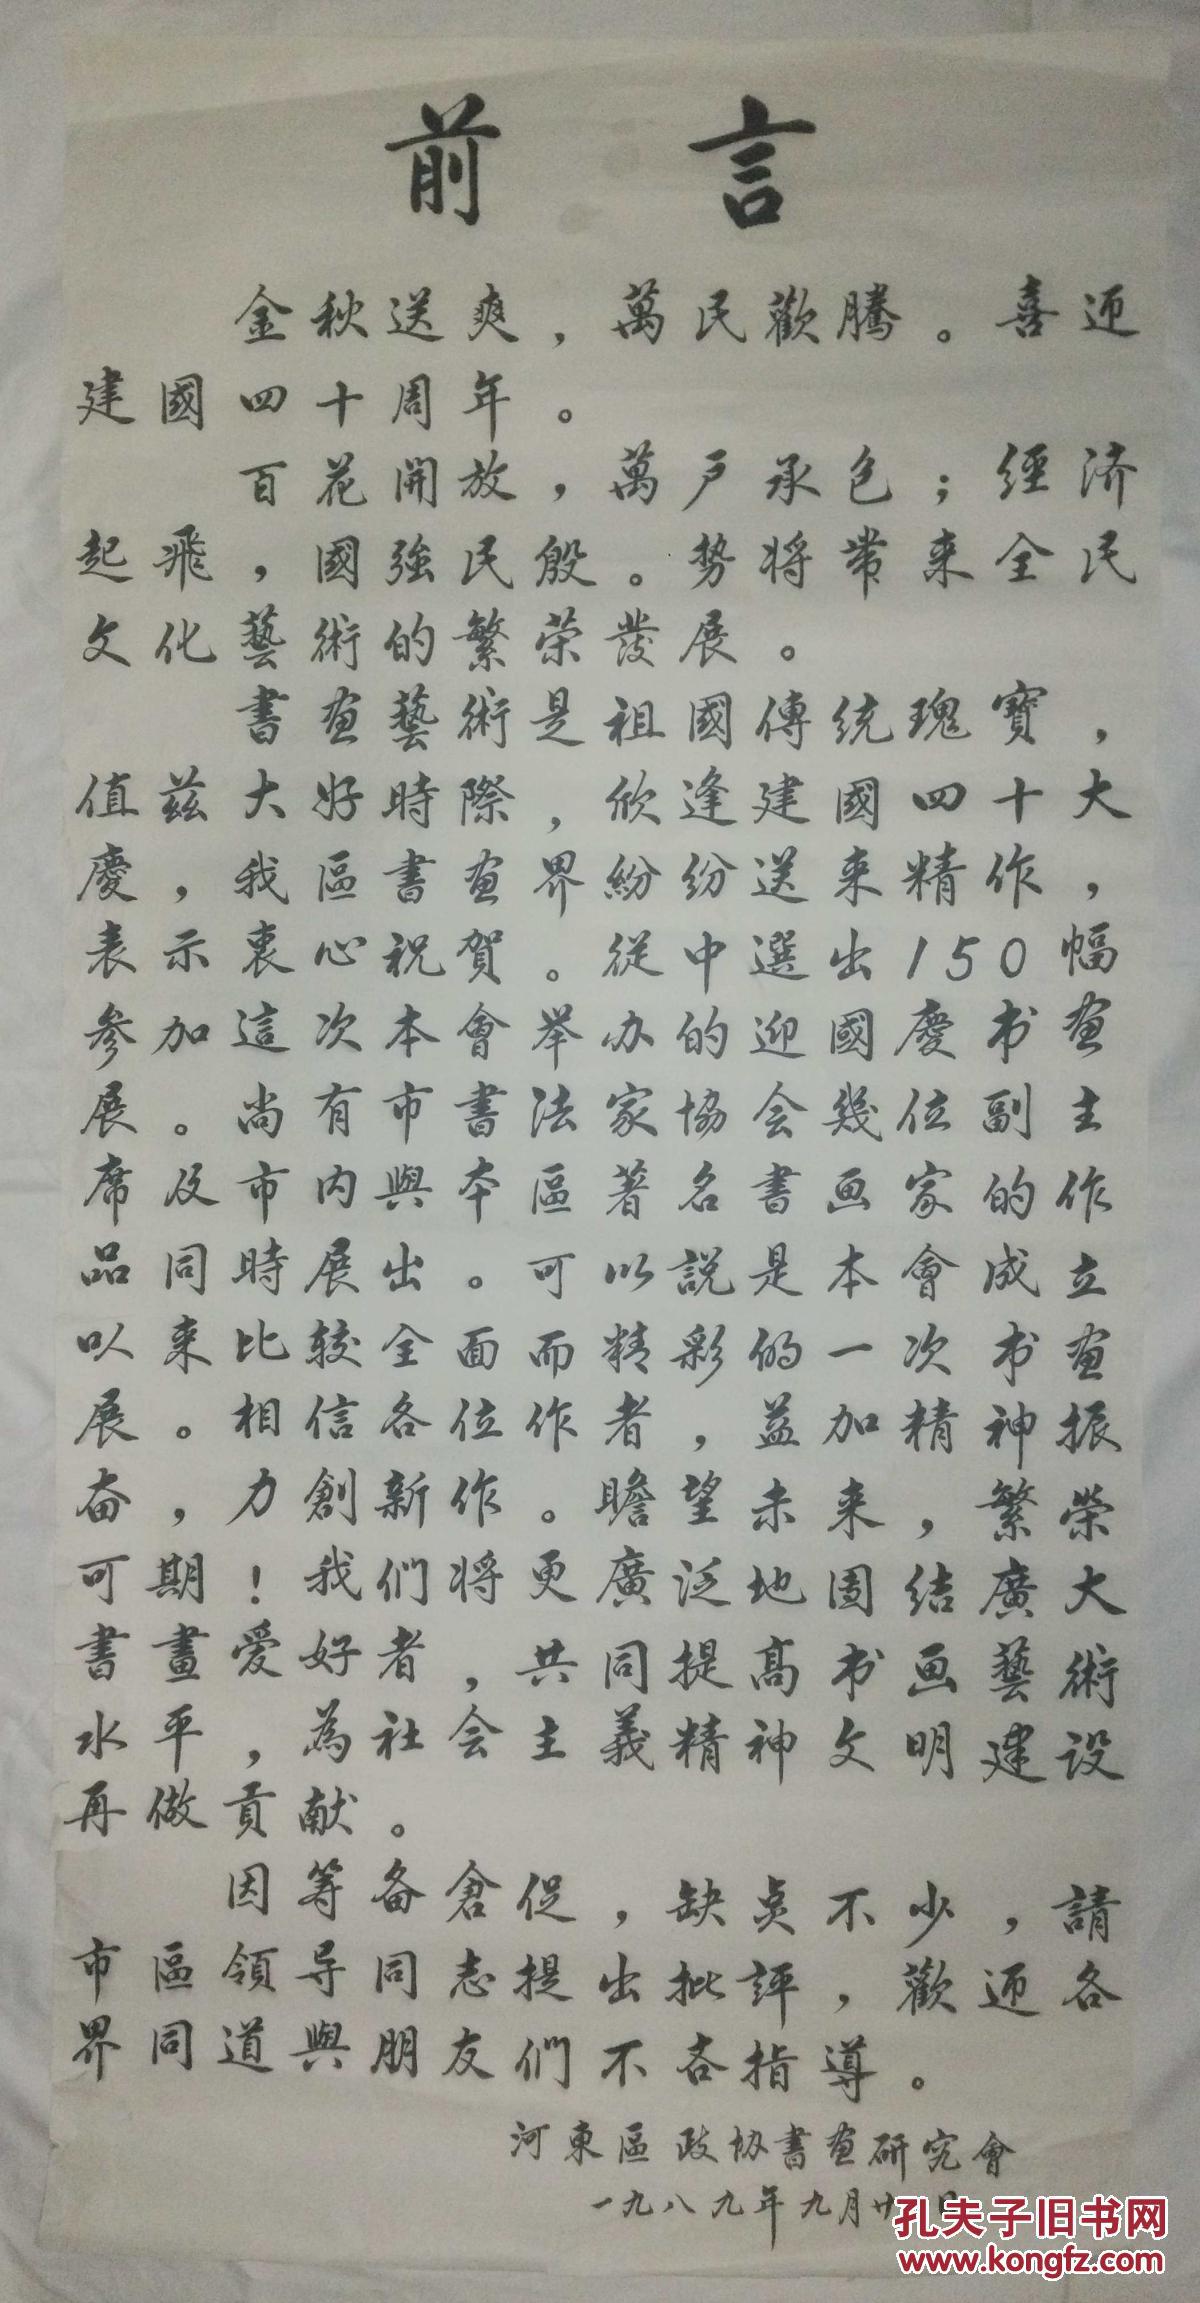 前言
金秋送爽，萬民歡騰。喜迎
建國四十周年。
百花開放，萬户承包；經济
起飛，國強民殷。势将带来全民
文化藝術的繁荣發展。
書画藝術是祖國傳统瑰寶，
值兹大好時際，欣逢建國四十大
慶，我區書画界紛纷送来精作，
表示衷心祝賀。從中選出150幅
参加這次本會举办的迎國慶书画
展。尚有市書法家協会幾位副主
席及市内與本區著名書画家的作
品同時展出。可以説是本會成立
以来比较全面而精彩的一次书画
展。相信各位作者，益加精神振
奋，力創新作。瞻望未来，繁榮
可期！我们将更廣泛地团结廣大
書畫爱好者，共同提高书画藝術
水平，為社会主義精神文明建设
再做貢献。
因筹备倉促，缺点不少，請
市區領导同志提出批評，歡迎各
界同道與朋友們不吝指導。
河東區政协書画研究會
一九八九年九月廿日
孔夫子旧书网
www.kongfz.com